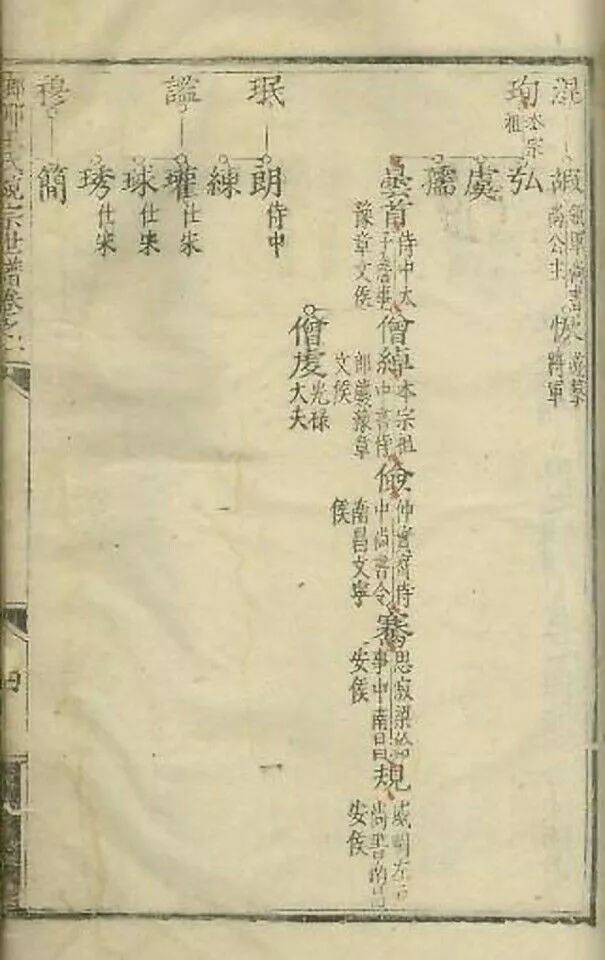 混
嘏
領軍尚書
尚公主
恢
將軍
珣
本宗
祖
弘
虞
孺
曇首
侍中太
子詹事
豫章文侯
僧綽
本宗祖
中書侍
郎襲豫章
文侯
儉
仲寶齊侍
中尚書令
南昌文寧
侯
騫
思寂梁給
事中南昌
安侯
規
威明左
尚書南昌
安侯
僧虔
光祿
大夫
珉
朗
侍中
練
謐
瓘
仕宋
球
仕宋
琇
仕宋
穆
簡
瑯琊王氏統宗世譜卷之
四